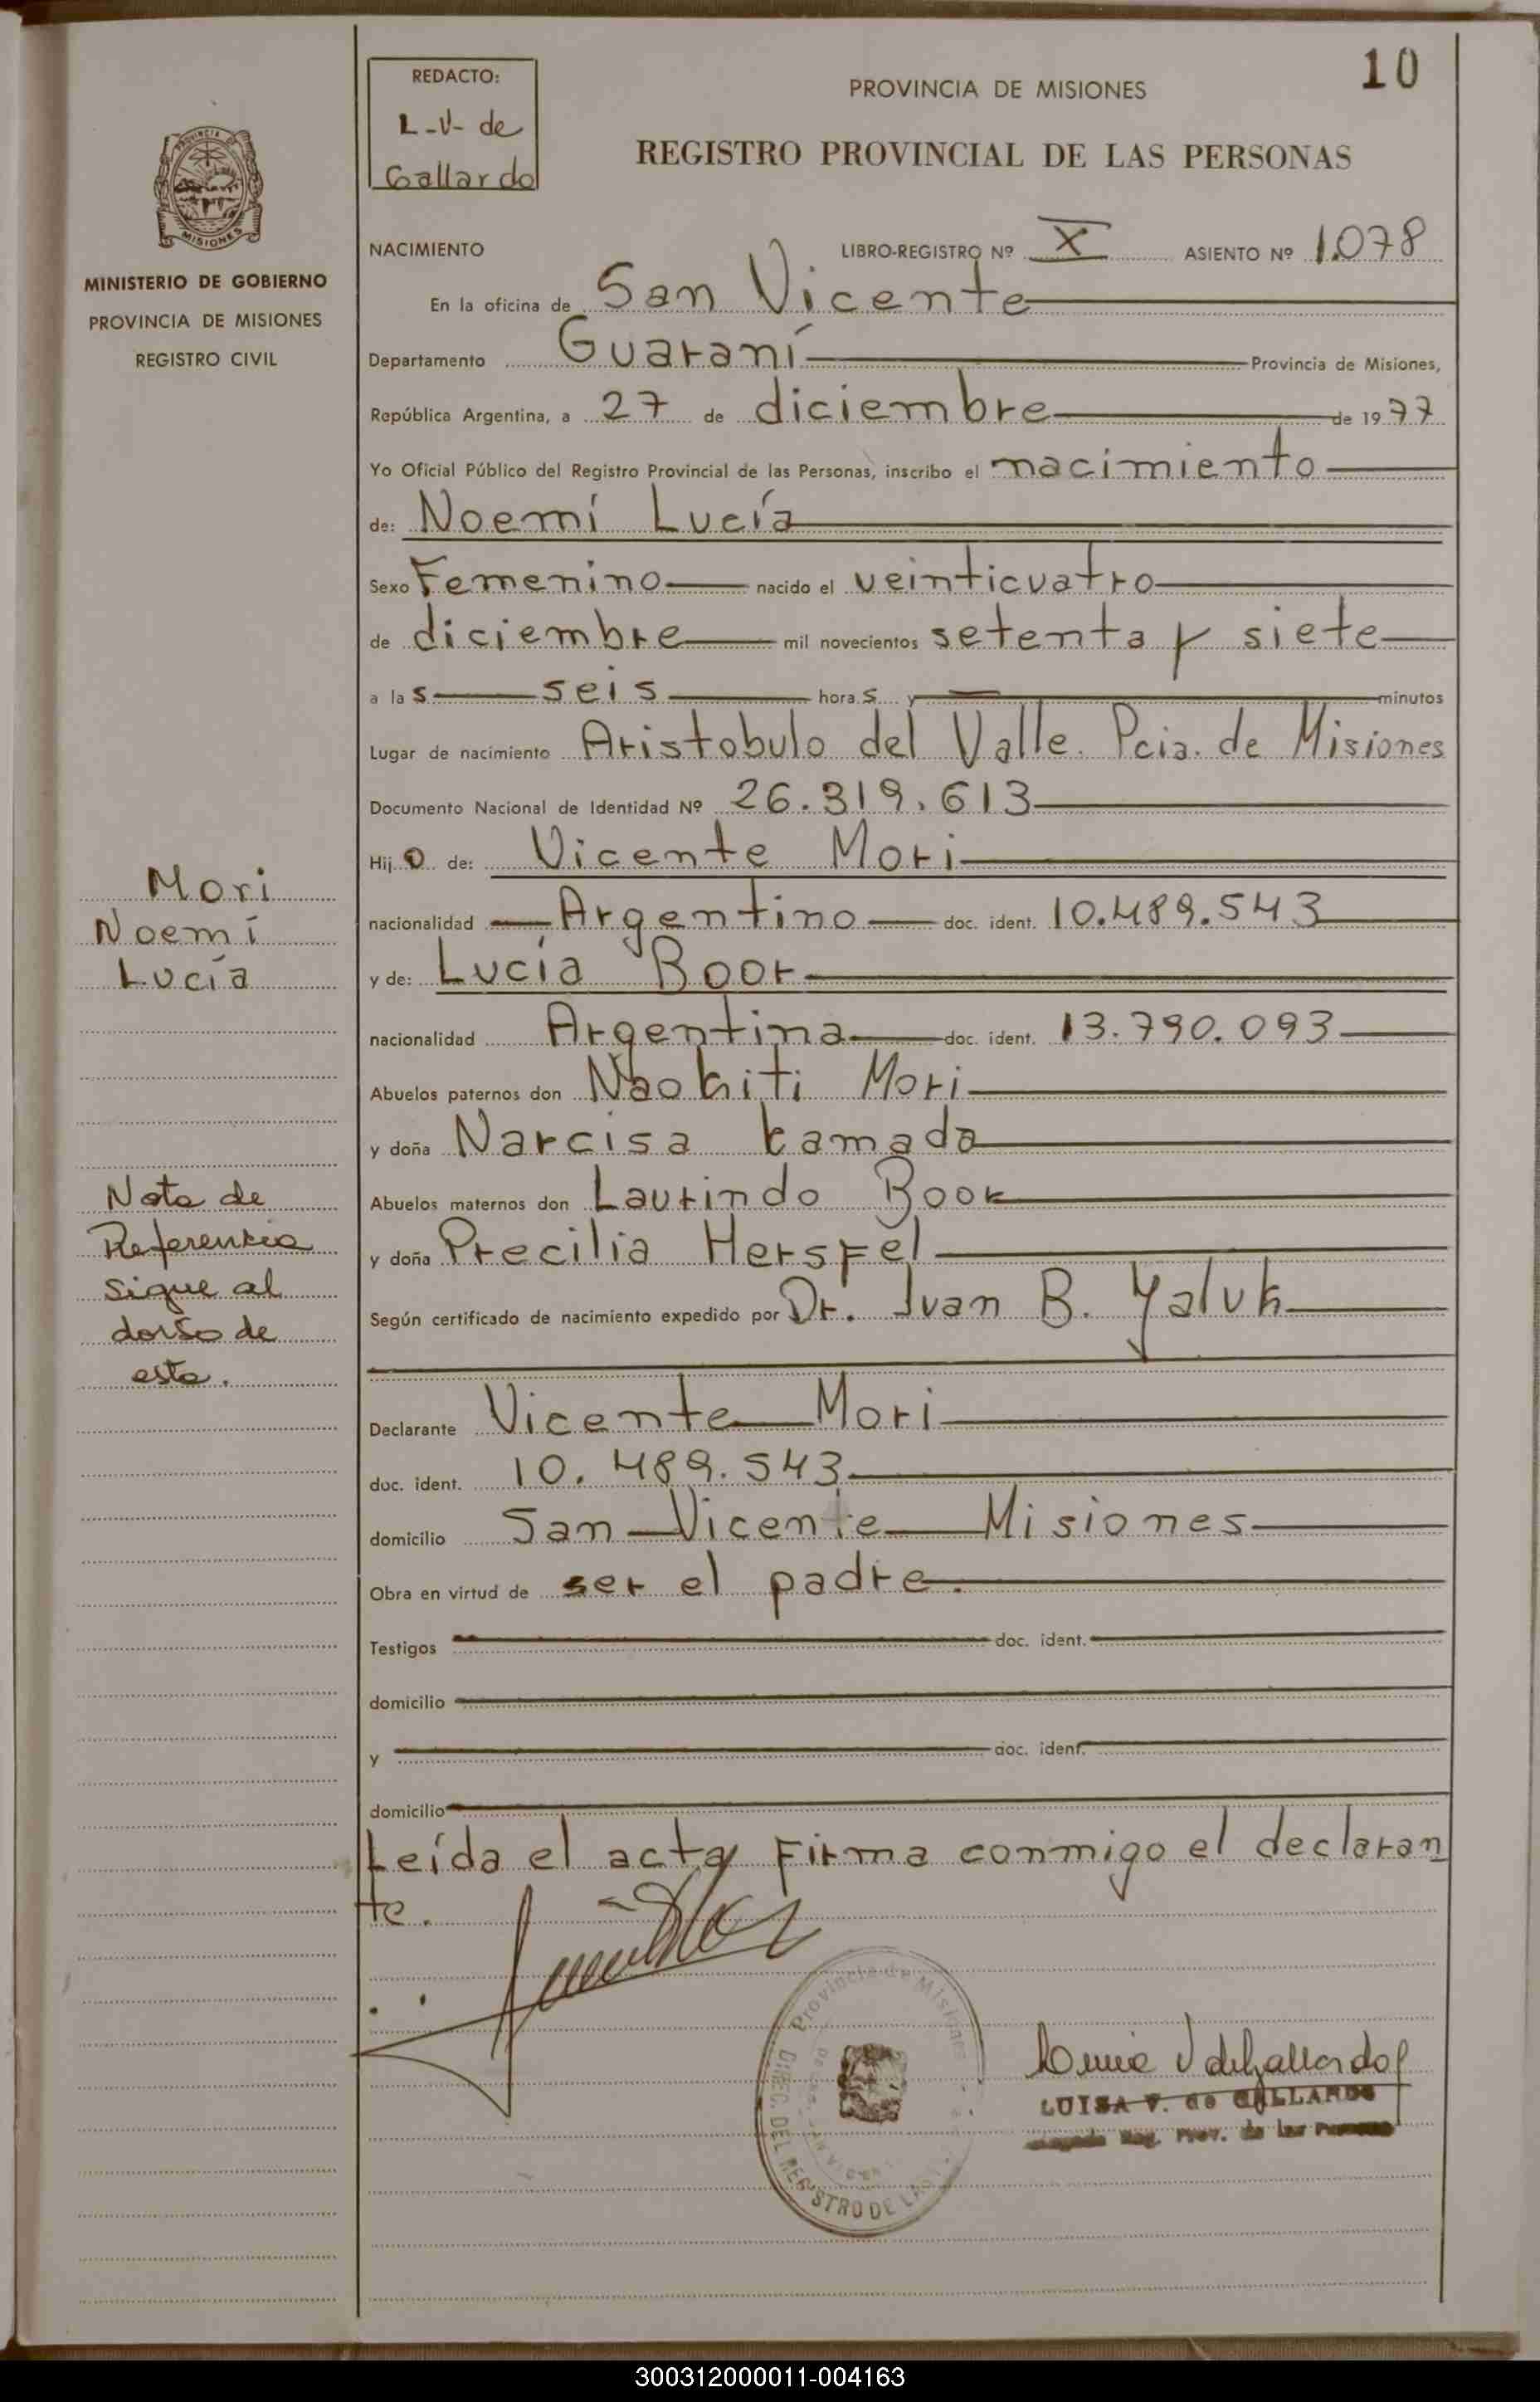 10
REDACTO:
L-V- de
Gallardo
PROVINCIA DE MISIONES
REGISTRO PROVINCIAL DE LAS PERSONAS
PROVINCIA DE
MISIONES
MINISTERIO DE GOBIERNO
PROVINCIA DE MISIONES
REGISTRO CIVIL
NACIMIENTO LIBRO-REGISTRO Nº X ASIENTO Nº 1.078
En la oficina de San Vicente
Departamento Guaraní Provincia de Misiones,
República Argentina, a 27 de diciembre de 1977
Yo Oficial Público del Registro Provincial de las Personas, inscribo el nacimiento
de: Noemí Lucía
Sexo Femenino nacido el veinticuatro
de diciembre mil novecientos setenta y siete
a las seis horas y — minutos
Lugar de nacimiento Aristobulo del Valle. Pcia. de Misiones
Documento Nacional de Identidad Nº 26.319.613
Hijo de: Vicente Mori
nacionalidad Argentino doc. ident. 10.489.543
y de: Lucía Boor
nacionalidad Argentina doc. ident. 13.790.093
Abuelos paternos don Naokiti Mori
y doña Narcisa Kamada
Abuelos maternos don Laurindo Boor
y doña Precilia Hersfel
Según certificado de nacimiento expedido por Dr. Ivan B. Yaluk
Declarante Vicente Mori
doc. ident. 10.489.543
domicilio San Vicente Misiones
Obra en virtud de ser el padre.
Testigos doc. ident.
domicilio
y doc. ident.
domicilio
Leída el acta firma conmigo el declaran
te.
Mori
Noemí
Lucía
Nota de
Referencia
sigue al
dorso de
esta.
Provincia de Misiones
DIREC. DEL REGISTRO DE LAS
LUISA V. de GALLARDO
Reg. Prov. de las Personas
300312000011-004163